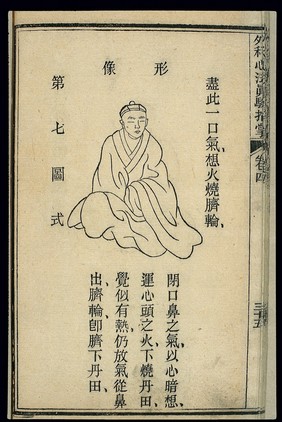 外科心法真驗指掌
卷四
三十五
形像
盡此一口氣、想火燒臍輪、
第七圖式
閉口鼻之氣、以心暗想、
運心頭之火、下燒丹田、
覺似有熱、仍放氣從鼻
出、臍輪卽臍下丹田、